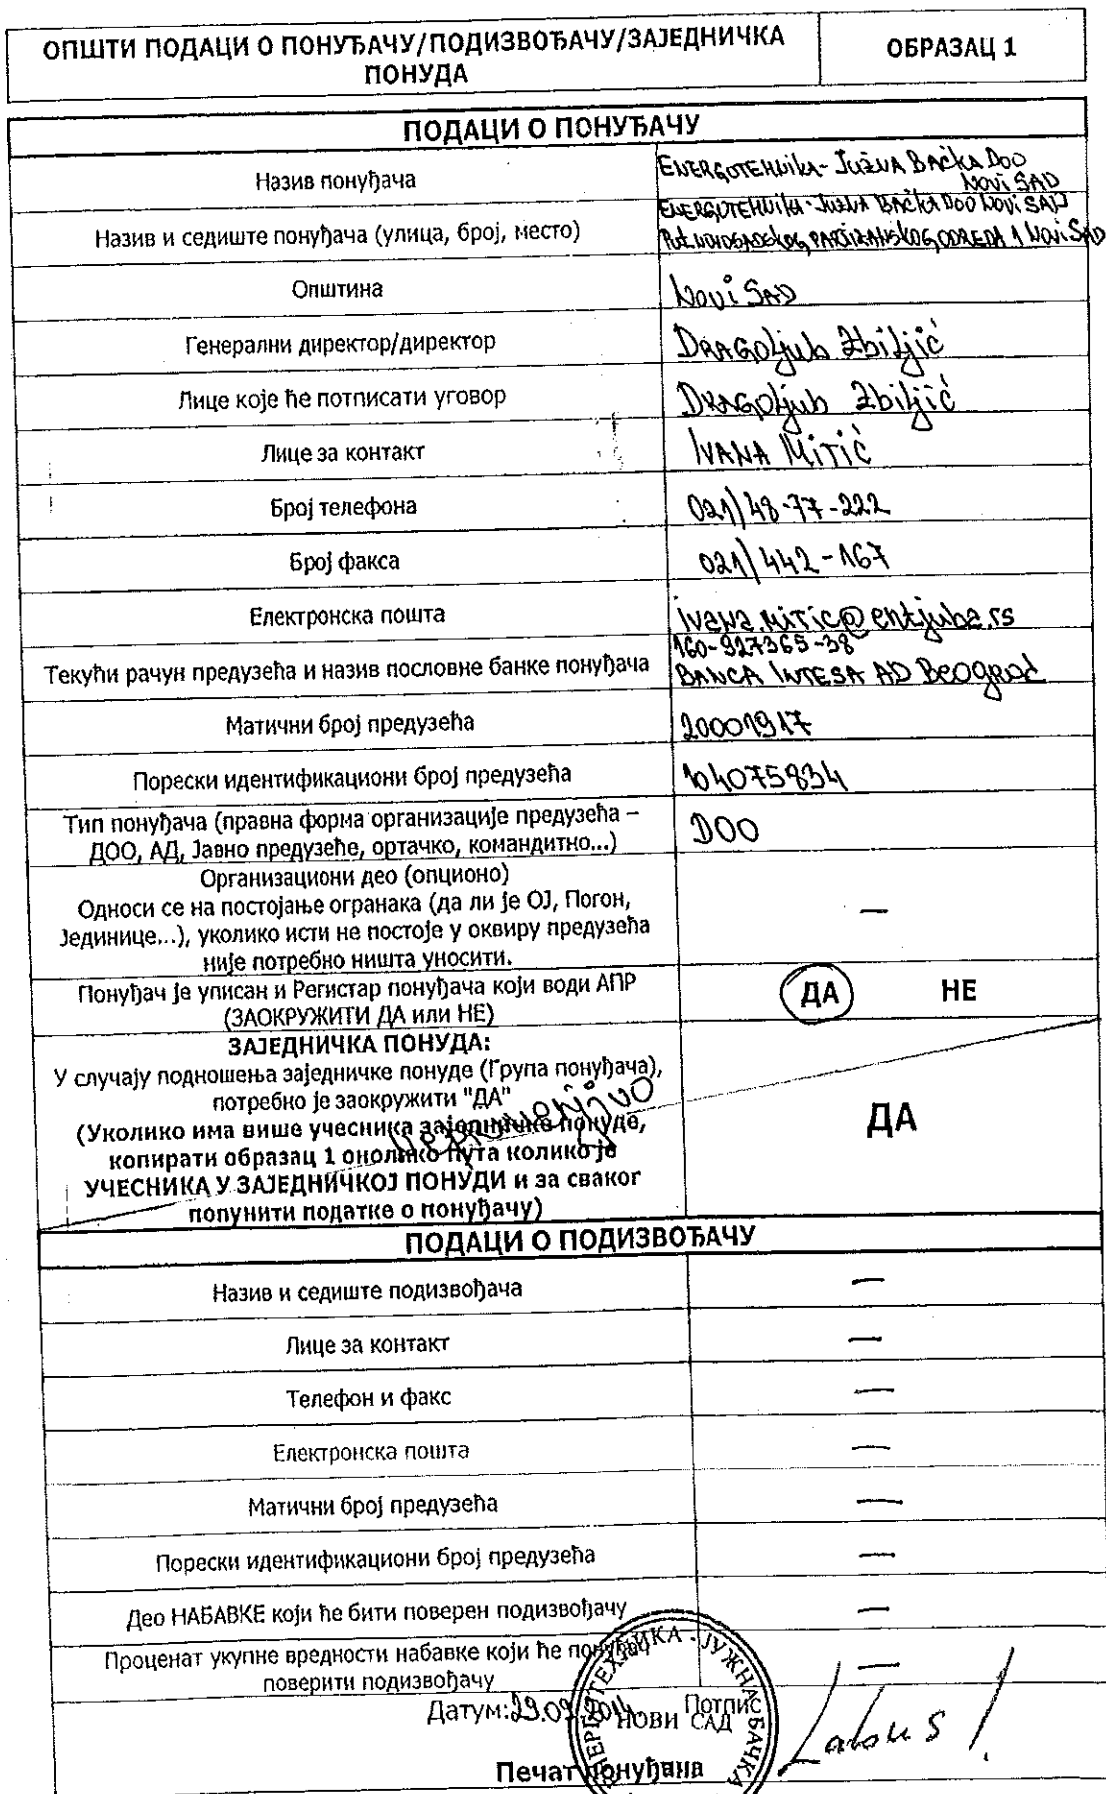 ОПШТИ ПОДАЦИ О ПОНУЂАЧУ/ПОДИЗВОЂАЧУ/ЗАЈЕДНИЧКА
ПОНУДА
ОБРАЗАЦ 1
ПОДАЦИ О ПОНУЂАЧУ
Назив понуђача
ENERGOTEHNIKA - JUŽNA BAČKA DOO
NOVI SAD
Назив и седиште понуђача (улица, број, место)
ENERGOTEHNIKA - JUŽNA BAČKA DOO NOVI SAD
PUT NOVOSADSKOG PARTIZANSKOG ODREDA 1 NOVI SAD
Општина
NOVI SAD
Генерални директор/директор
DRAGOLJUB ZBILJIĆ
Лице које ће потписати уговор
DRAGOLJUB ZBILJIĆ
Лице за контакт
IVANA MITIĆ
Број телефона
021/48-77-222
Број факса
021/442-167
Електронска пошта
ivana.mitic@entjuba.rs
Текући рачун предузећа и назив пословне банке понуђача
160-927365-38
BANCA INTESA AD Beograd
Матични број предузећа
20001917
Порески идентификациони број предузећа
104075834
Тип понуђача (правна форма организације предузећа –
ДОО, АД, Јавно предузеће, ортачко, командитно...)
DOO
Организациони део (опционо)
Односи се на постојање огранака (да ли је ОЈ, Погон,
Јединице...), уколико исти не постоје у оквиру предузећа
није потребно ништа уносити.
—
Понуђач је уписан и Регистар понуђача који води АПР
(ЗАОКРУЖИТИ ДА или НЕ)
ДА НЕ
ЗАЈЕДНИЧКА ПОНУДА:
У случају подношења заједничке понуде (Група понуђача),
потребно је заокружити "ДА"
(Уколико има више учесника заједничке понуде,
копирати образац 1 онолико пута колико је
УЧЕСНИКА У ЗАЈЕДНИЧКОЈ ПОНУДИ и за сваког
попунити податке о понуђачу)
Neprimenjivo
ДА
ПОДАЦИ О ПОДИЗВОЂАЧУ
Назив и седиште подизвођача
—
Лице за контакт
—
Телефон и факс
—
Електронска пошта
—
Матични број предузећа
—
Порески идентификациони број предузећа
—
Део НАБАВКЕ који ће бити поверен подизвођачу
—
Проценат укупне вредности набавке који ће понуђач
поверити подизвођачу
—
Датум: 29.09.2014. Потпис
ЕНЕРГОТЕХНИКА - ЈУЖНА БАЧКА
НОВИ САД
Печат понуђача